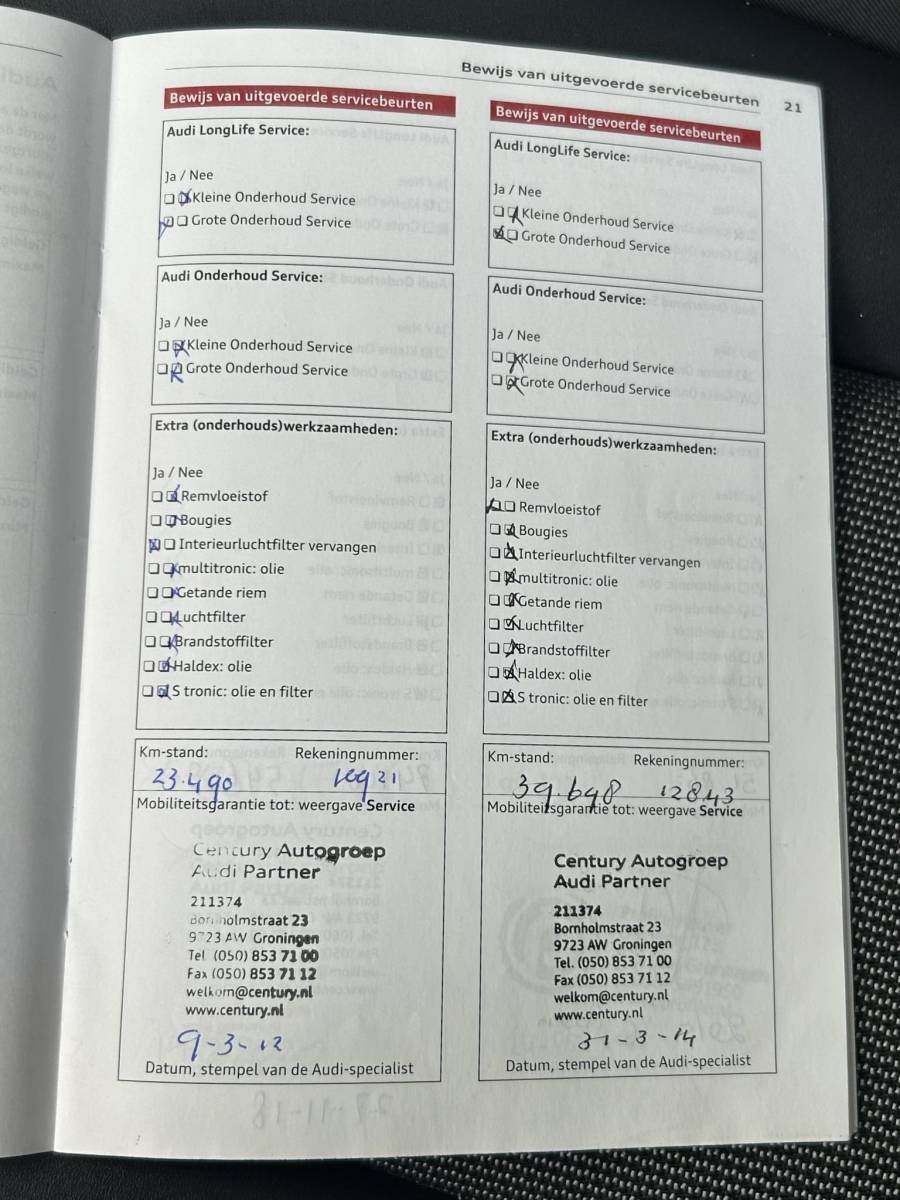 Bewijs van uitgevoerde servicebeurten 21
Bewijs van uitgevoerde servicebeurten
Audi LongLife Service:
Ja / Nee
Kleine Onderhoud Service
Grote Onderhoud Service
Audi Onderhoud Service:
Ja / Nee
Kleine Onderhoud Service
Grote Onderhoud Service
Extra (onderhouds)werkzaamheden:
Ja / Nee
Remvloeistof
Bougies
Interieurluchtfilter vervangen
multitronic: olie
Getande riem
Luchtfilter
Brandstoffilter
Haldex: olie
S tronic: olie en filter
Km-stand: Rekeningnummer:
23.490
Mobiliteitsgarantie tot: weergave Service
Century Autogroep
Audi Partner
211374
Bornholmstraat 23
9723 AW Groningen
Tel (050) 853 71 00
Fax (050) 853 71 12
welkom@century.nl
www.century.nl
9-3-12
Datum, stempel van de Audi-specialist
Bewijs van uitgevoerde servicebeurten
Audi LongLife Service:
Ja / Nee
Kleine Onderhoud Service
Grote Onderhoud Service
Audi Onderhoud Service:
Ja / Nee
Kleine Onderhoud Service
Grote Onderhoud Service
Extra (onderhouds)werkzaamheden:
Ja / Nee
Remvloeistof
Bougies
Interieurluchtfilter vervangen
multitronic: olie
Getande riem
Luchtfilter
Brandstoffilter
Haldex: olie
S tronic: olie en filter
Km-stand: Rekeningnummer:
39.698 12843
Mobiliteitsgarantie tot: weergave Service
Century Autogroep
Audi Partner
211374
Bornholmstraat 23
9723 AW Groningen
Tel. (050) 853 71 00
Fax (050) 853 71 12
welkom@century.nl
www.century.nl
31-3-14
Datum, stempel van de Audi-specialist